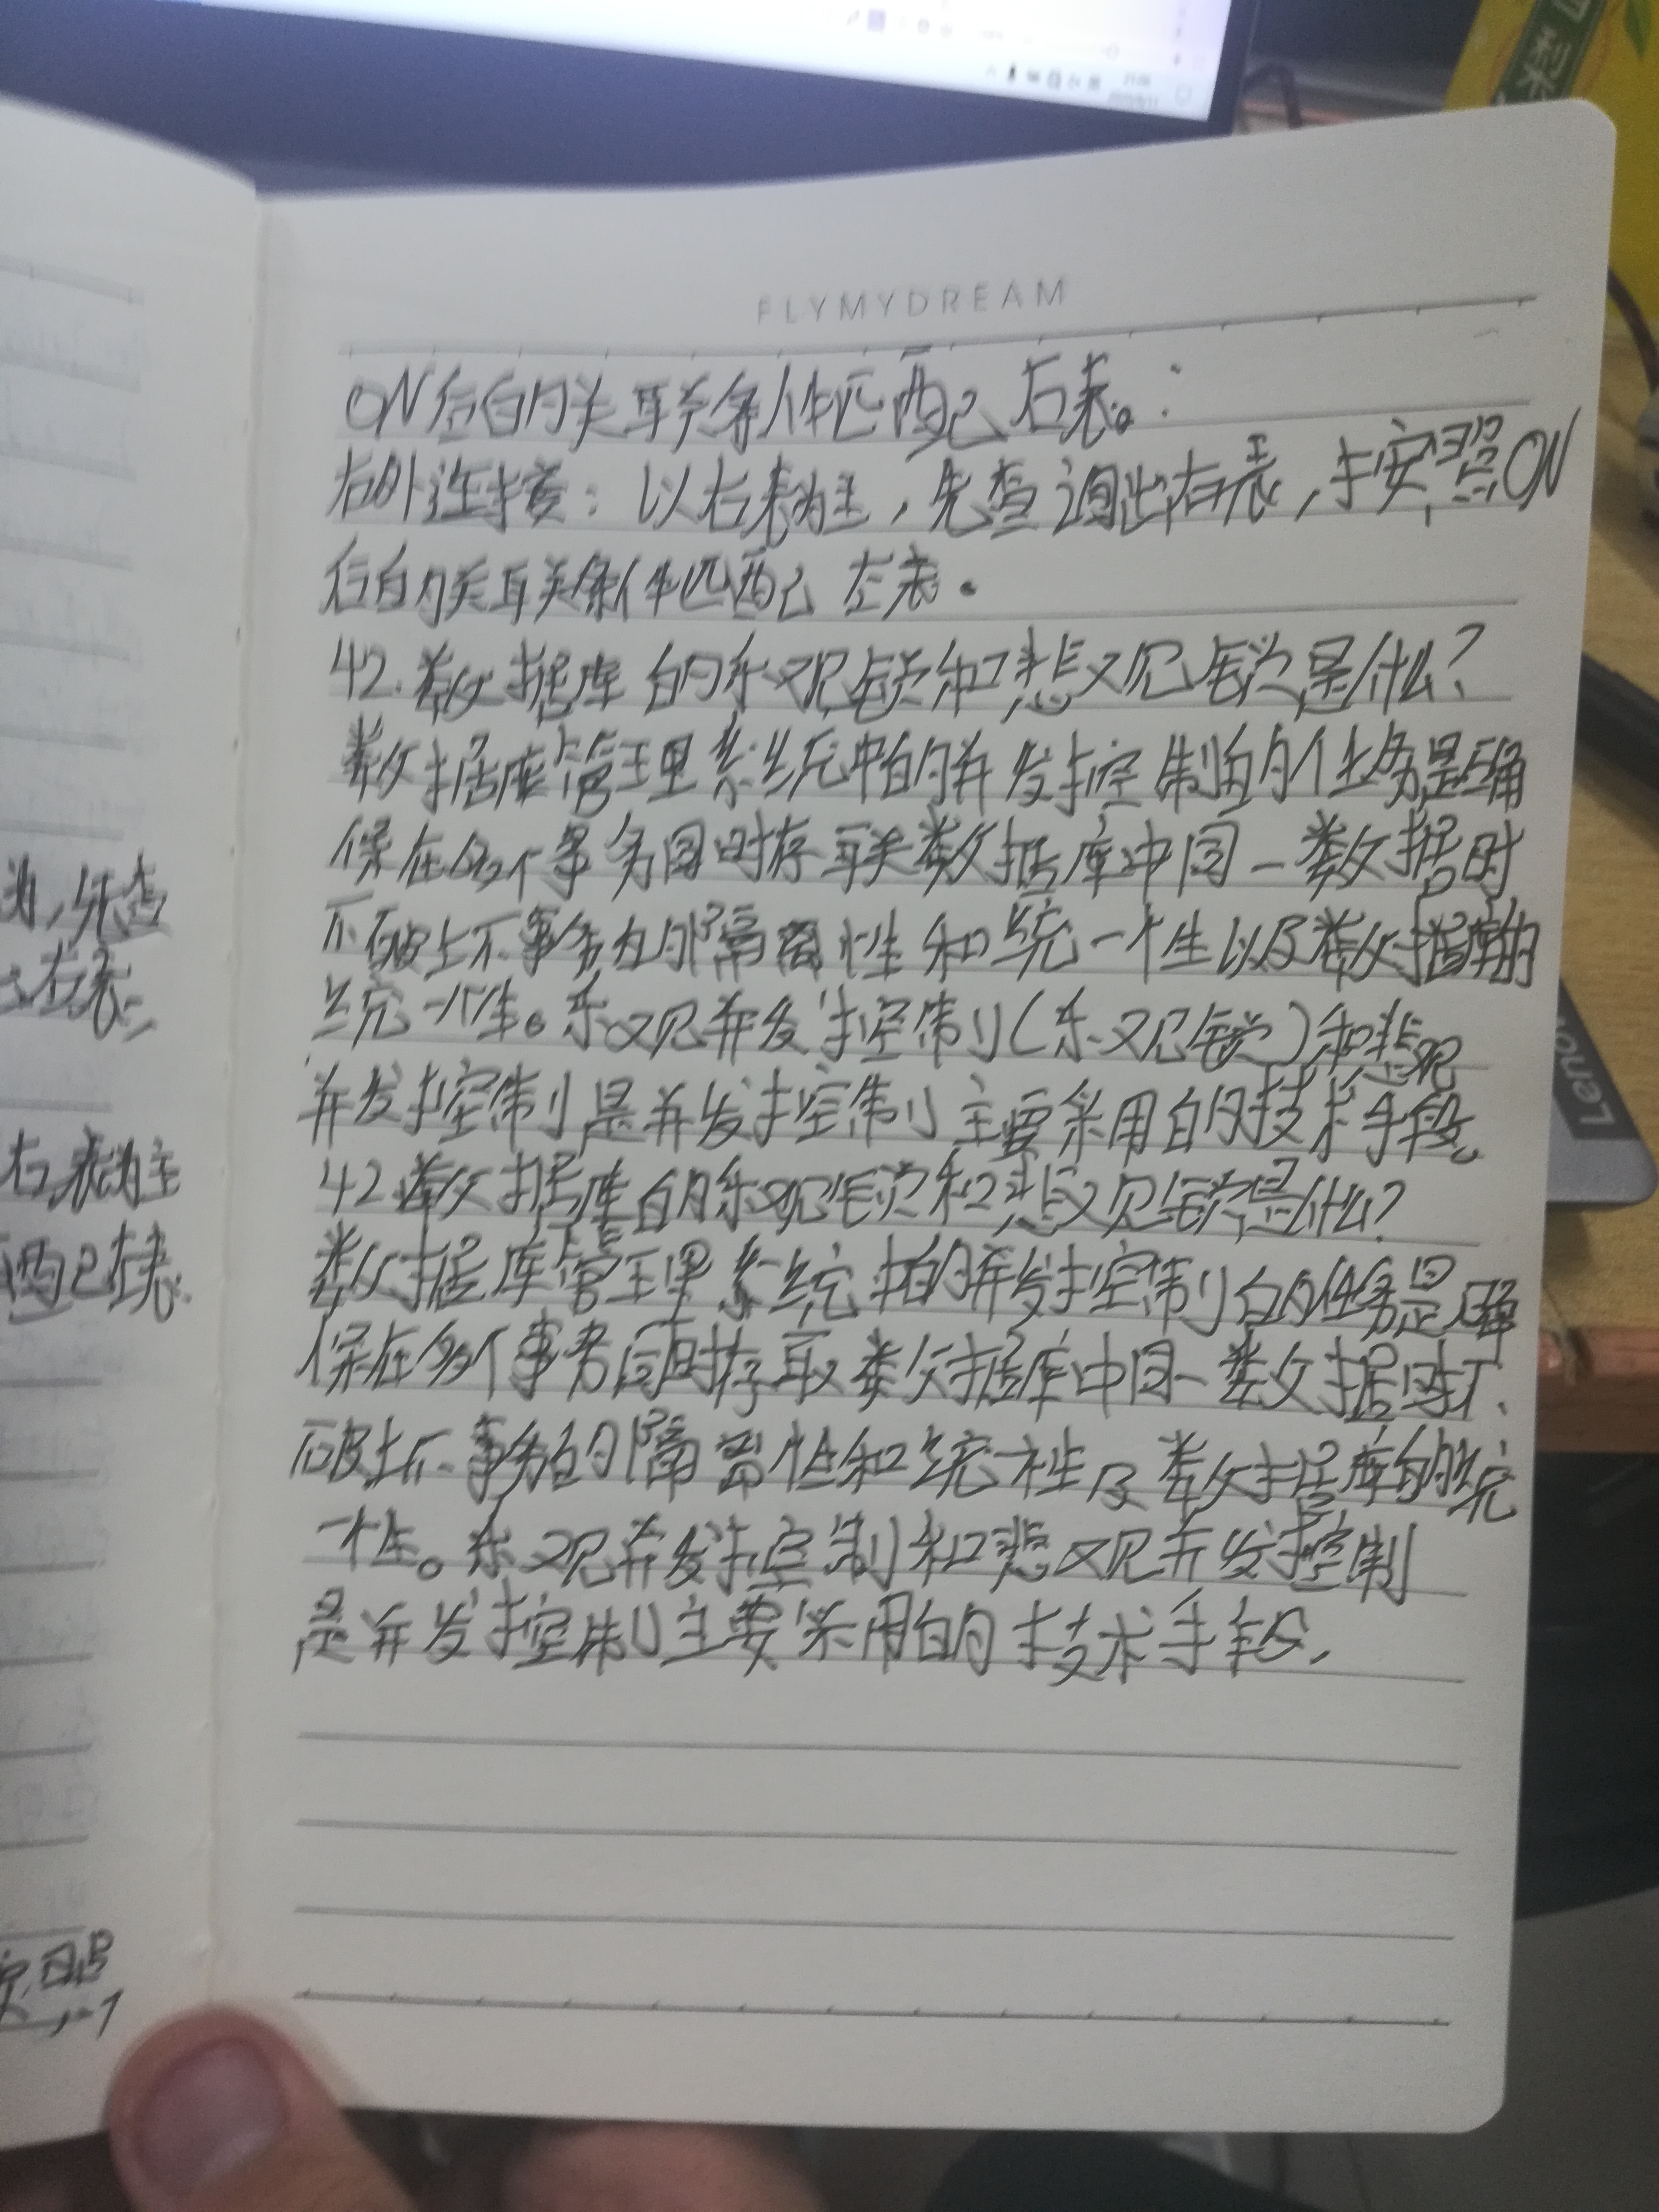 FLYMYDREAM
ON后的关联条件匹配右表。:
右外连接：以右表为主，先查询出右表，按照ON
后的关联条件匹配左表。
42.数据库的乐观锁和悲观锁是什么?
数据库管理系统中的并发控制的任务是确
保在多个事务同时存联数据库中同一数据时
不破坏事务的隔离性和统一性以及数据库的
统一性。乐观并发控制(乐观锁)和悲观
并发控制是并发控制主要采用的技术手段。
42.数据库的乐观锁和悲观锁是什么?
数据库管理系统中的并发控制的任务是确
保在多个事务同时存取数据库中同一数据时不
破坏事务的隔离性和统一性及数据库的统
一性。乐观并发控制和悲观并发控制
是并发控制主要采用的技术手段，
为,先查
右表
右表为主
配左表.
Lenovo